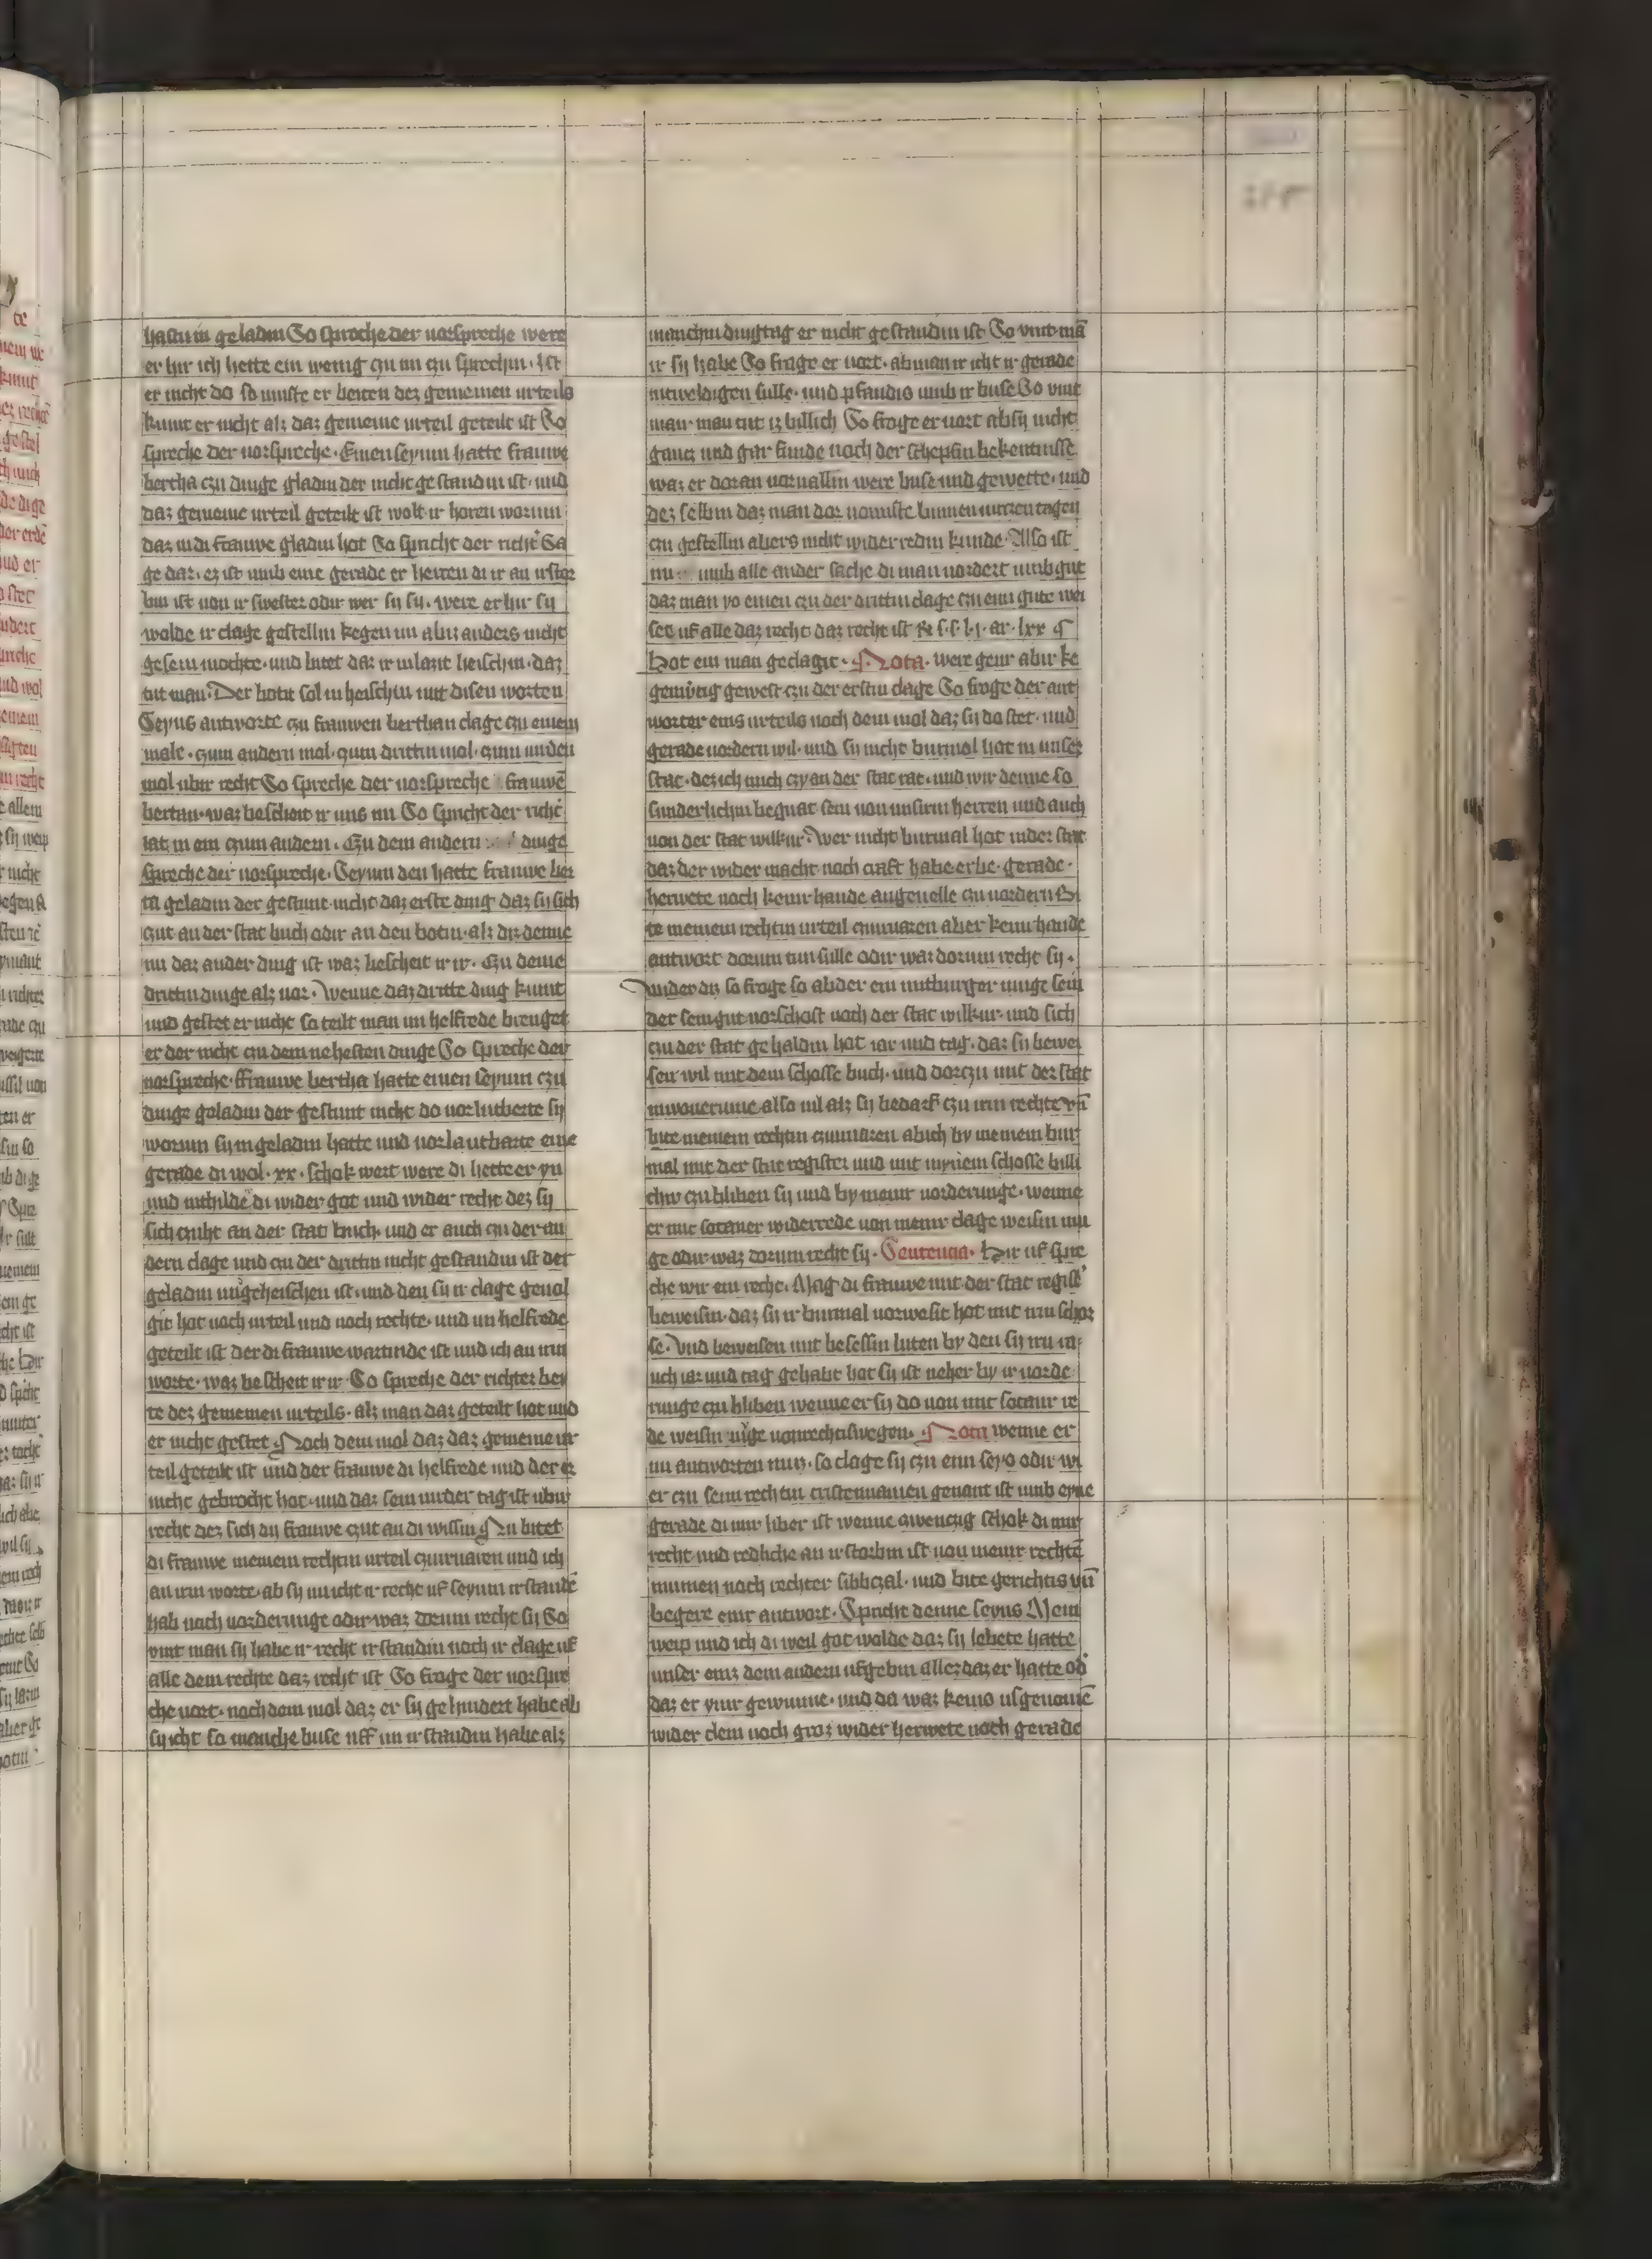 hastu in geladin So spreche der uorspreche were
er hir ich hette ein wenig czu im czu sprechin· ist
er nicht do so muste er beiten dez gemeinen urteils
kumt er nicht alz daz gemeine urteil geteilt ist So
spreche der uorspreche· Einen seyum hatte frauwe
bertha czu dinge gladin der nicht gestandin ist· und
daz gemeine urteil geteilt ist wolt ir horen worum
daz in di frauwe gladin hot So spricht der richt' Sa
ge daz· ez ist umb eine gerade er herren di ir an irstor
bin ist uon ir swester odir wer sy sy· were er hir sy
wolde ir clage gestellin kegen im abir anders nicht
gesein mochte· und bitet daz ir in lazit heischin· daz
tut man· Der botit sol in heischin mit disen worten
Seyus antworte czu frauwen berthan clage czu einem
male· czum andern mol· czum drittin mol· czum uirden
mol ubir recht So spreche der uorspreche frauwē
bertan· waz bescheit ir uns nu So spricht der richt'
lat in em czum andern· Czu dem andern dinge
spreche der uorspreche· Seyum den hatte frauwe ber
ta geladin der gestunt nicht daz erste ding daz sy sich
czut an der stat buch odir an den botin· alz diz denne
nu daz ander ding ist waz bescheit ir ir· Czu deme
drittin dinge alz uor· Wenne daz dritte ding kumt
und gestet er nicht so teilt man im helfrede brenget
er der nicht czu dem nehesten dinge So spreche der
uorspreche· Frauwe bertha hatte einen seyum czu
dinge geladin der gestunt nicht do uorlutberte sy
worum sy in geladin hatte und uorlautbarte eine
gerade di wol· xx· schok wert were di hette er yn
und mithilde di wider got und wider recht dez sy
sich czuht an der stat buch· und er auch czu der an
dern clage und czu der drittin nicht gestandin ist der
geladin uzgeheischen ist· und den sy ir clage geuol
git hot noch urteil und noch rechte· und im helfrede
geteilt ist der di frauwe wartinde ist und ich an irin
worte· waz bescheit ir ir· So spreche der richter bei
te dez gemeinen urteils· alz man daz geteilt hot und
er nicht gestet Noch dem mol daz daz gemeine ur
teil geteilt ist und der frauwe di helfrede und der er
nicht gebrocht hot· und daz sein uirder tag ist ubir
recht dez sich dy frauwe czut an di wissin Nu bitet
di frauwe meinem rechtin urteil czuiruaren und ich
an irin worte· ab sy nu icht ir recht uf seyum irstandē
hab noch uorderunge odir waz dorum recht sy So
uint man sy habe ir recht irstandin noch ir clage uf
alle dem rechte daz recht ist So frage der uorspre
che uort· noch dem mol daz er sy gehindert habe ab
sy icht so manche buse uff im irstandin habe alz
manchin dingtag er nicht gestandin ist So uint mā
ir sy habe So frage er uort· ab man ir icht ir gerade
inweldigen sulle· und pfandis umb ir buse So uint
man· man tut iz billich So froge er uort ab sy nicht
gancz und gar finde noch der schepfin bekentnisse
waz er doran uoruallin were buse und gewette· und
dez selbin daz man dor nomiste binnen uirczentagen
czu gestellin abers nicht widerredin kunde· Also ist
nu umb alle ander sache di man uordert umb gut
daz man yo einen czu der drittin clage czu eim gute wei
set uf alle daz recht daz recht ist
Hot ein man geclagit· Nota· were geur abir ke
genwtig gewest czu der erstin clage So froge der ant
worter eins urteils noch dem mol daz sy do stet· und
gerade uordern wil· und sy nicht burmol hot in unser
stat· dez ich mich czy an der stat rat· und wir denne so
sunderlichin begnat sein uon unsirm herren und auch
uon der stat wilkur· Wer nicht burmal hot in der stat
daz der wider macht noch craft habe erbe· gerade·
herwete noch keinr hande angeuelle czu uordern Bi
te meinem rechtin urteil czuiruaren ab er keinr hande
antwort dorum tun sulle odir waz dorum recht sy·
Wider diz so froge so ab der ein mitburger muge sein
der sein gut uorschost noch der stat wilkur· und sich
czu der stat gehaldin hat iar und tag· daz sy bewei
sen wil mit dem schosse buch· und dorczu mit der stat
inwonerinne also uil alz sy bedarf czu irin rechte vñ
bite meinem rechtin czuiruaren ab ich by meinem bur
mal mit der stat register und mit mynem schosse billi
chir czu bliben sy und by meinr uorderunge· wenne
er mit sotaner widerrede uon meinr clage weisin mu
ge odir waz dorum recht sy· Sentencia· Hir uf spre
che wir ein recht· Mag di frauwe mit der stat regist'
beweisin· daz sy ir burmal uorwesit hot mit irin schoz
se· Und beweisen mit besessin luten by den sy iru in
nch iar und tag gehabt hot sy ist neher by ir uorde
runge czu bliben wenne er sy do uon mit sotanr re
de weisin muge uonrechtiswegen· Nota wenne er
im antworten mus· so clage sy czu eim seyo odir wi
er czu seinr rechtin cristennamen genant ist umb eyne
gerade di mir liber ist wenne czwenczig schok di mir
recht und redliche an irstorbin ist uon meinr rechtē
mumen noch rechter sibbczal· und bite gerichtis vñ
begere eine antwort· Spricht denne seyus Mein
weip und ich di weil got wolde daz sy lebete hatte
unser eins dem andern ufgebin allez daz er hatte od'
daz er ymir gewunne· und da waz keins usgenomē
wider clein noch groz wider herwete noch gerade